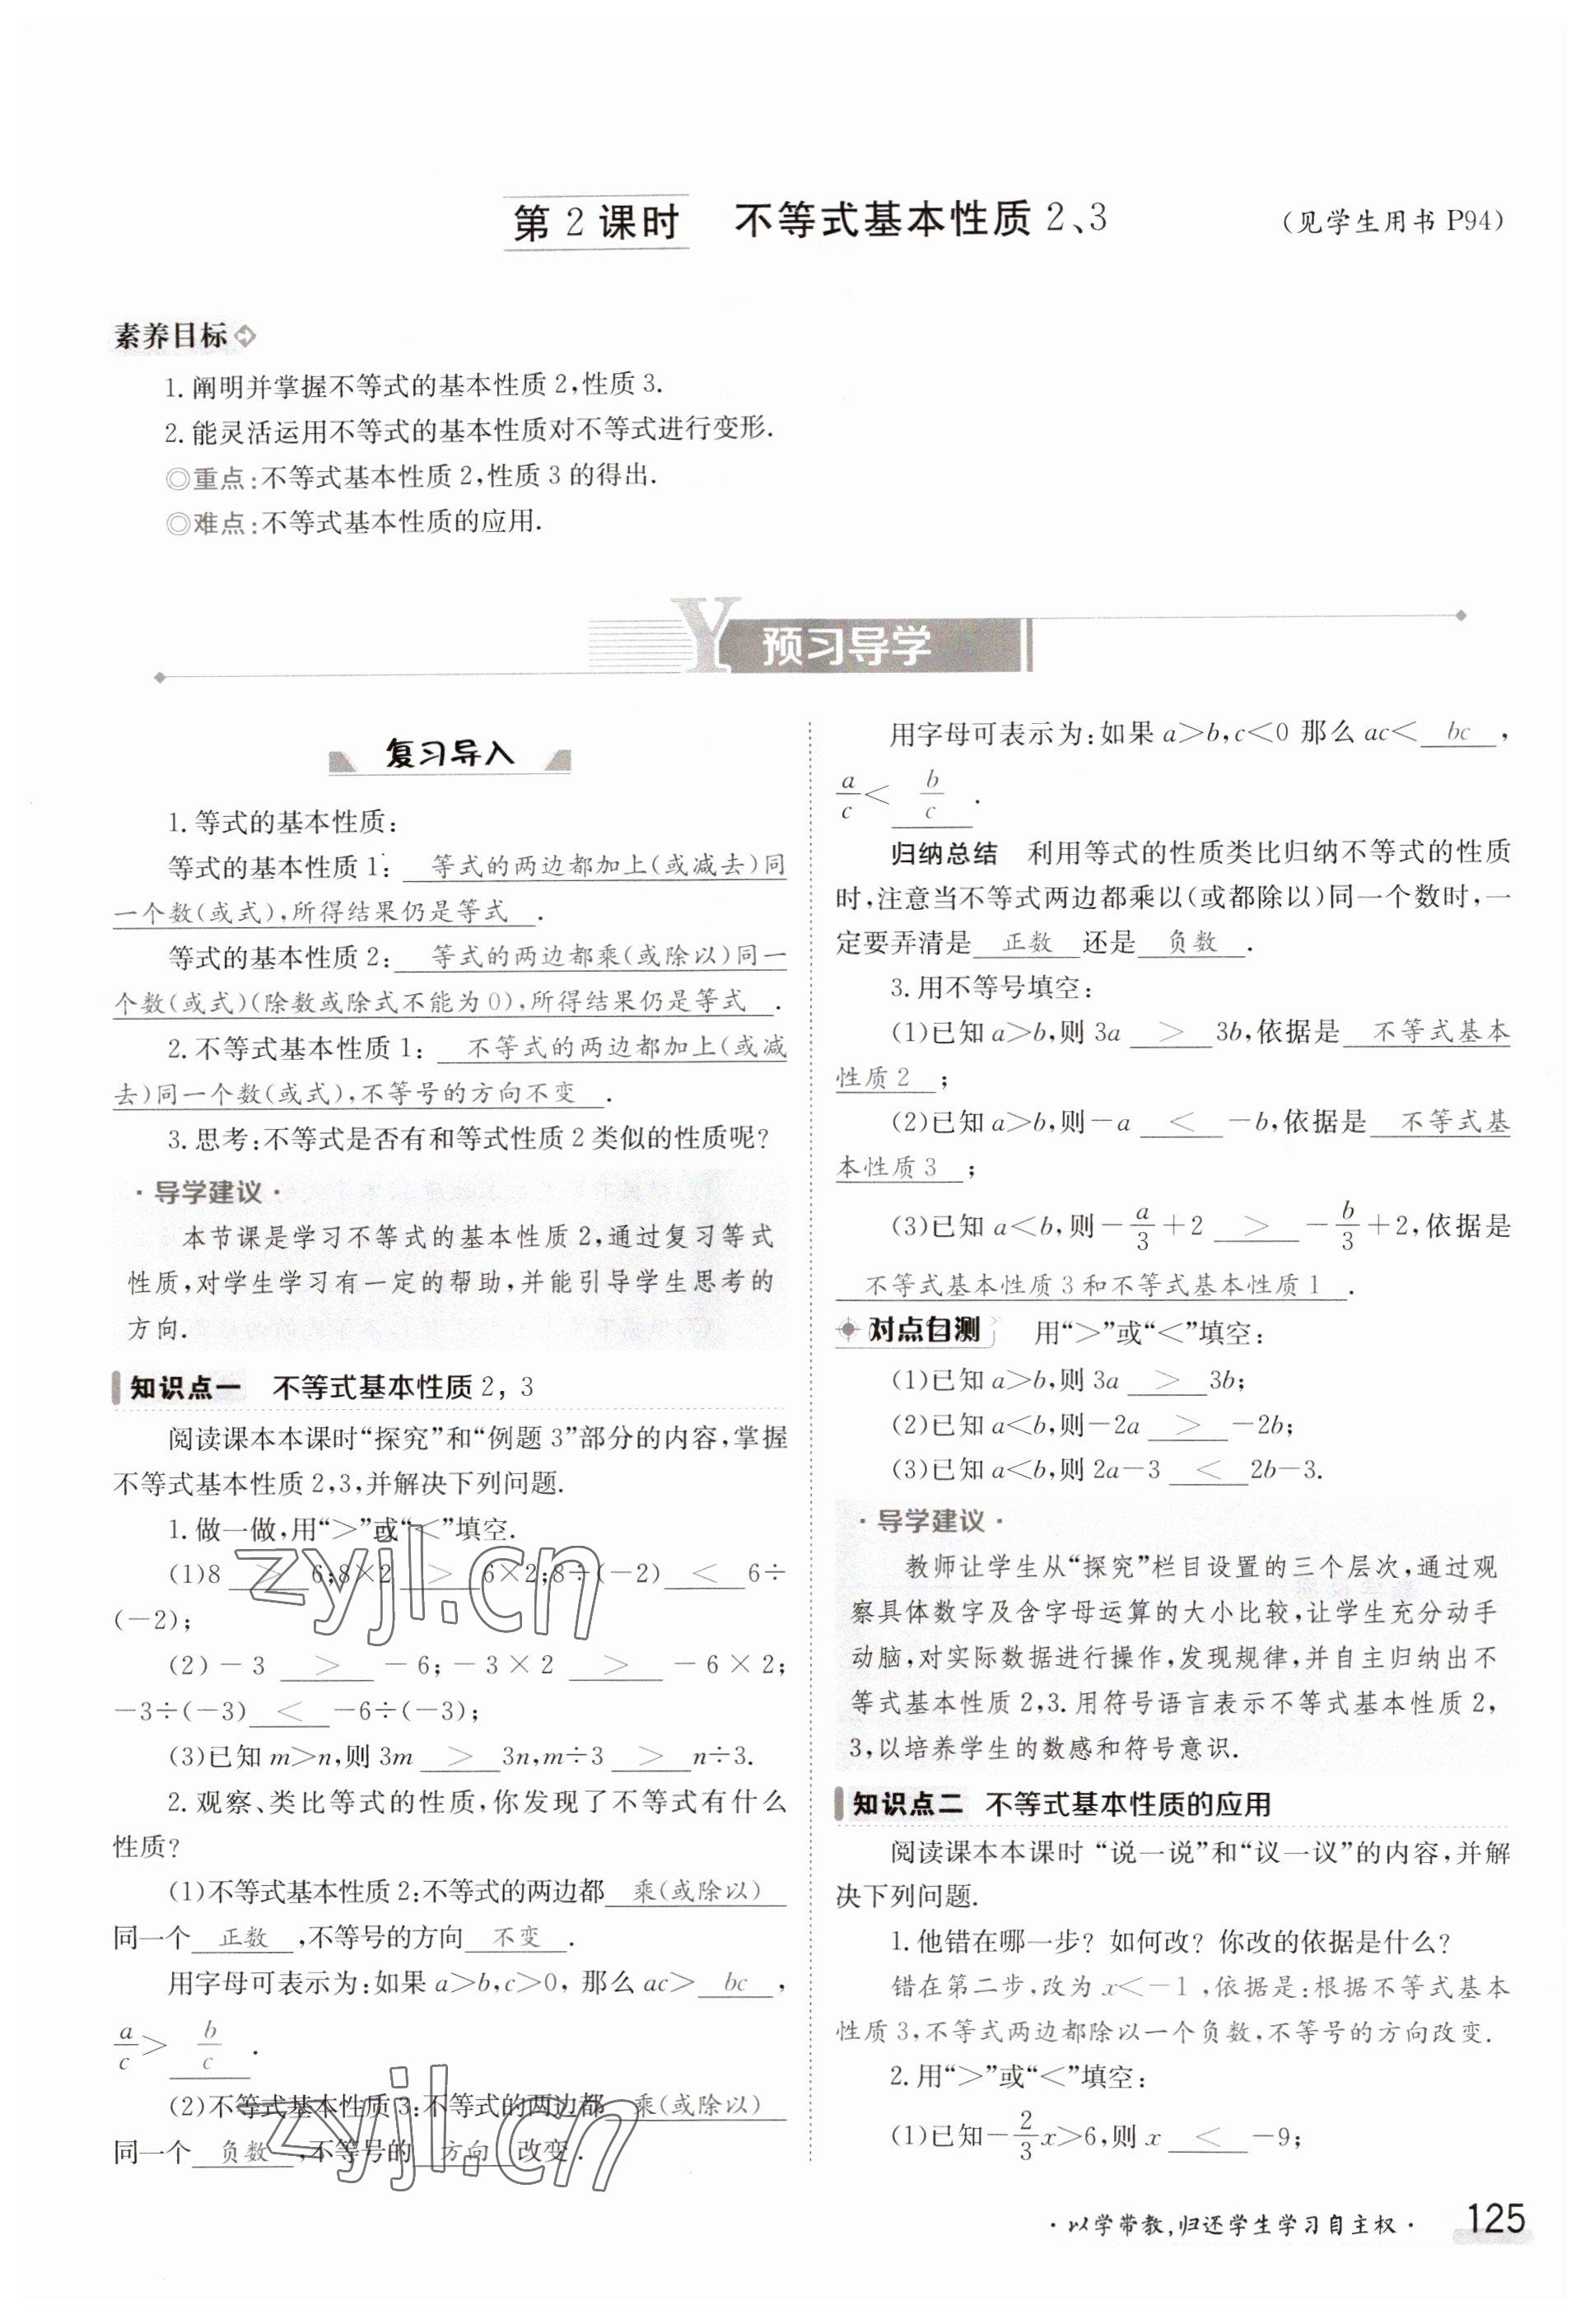 第 2 课时　不等式基本性质 2、3　(见学生用书 P94)
素养目标
1. 阐明并掌握不等式的基本性质 2,性质 3.
2. 能灵活运用不等式的基本性质对不等式进行变形.
◎重点:不等式基本性质 2,性质 3 的得出.
◎难点:不等式基本性质的应用.
Y 预习导学
复习导入
1. 等式的基本性质:
等式的基本性质 1: 等式的两边都加上(或减去)同
一个数(或式),所得结果仍是等式 .
等式的基本性质 2: 等式的两边都乘(或除以)同一
个数(或式)(除数或除式不能为 0),所得结果仍是等式 .
2. 不等式基本性质 1: 不等式的两边都加上(或减
去)同一个数(或式),不等号的方向不变 .
3. 思考:不等式是否有和等式性质 2 类似的性质呢?
· 导学建议 ·
本节课是学习不等式的基本性质 2,通过复习等式
性质,对学生学习有一定的帮助,并能引导学生思考的
方向.
知识点一　不等式基本性质 2, 3
阅读课本本课时“探究”和“例题 3”部分的内容,掌握
不等式基本性质 2,3,并解决下列问题.
1. 做一做,用“>”或“<”填空.
(1)8 > 6;8×2 > 6×2;8÷(-2) < 6÷
(-2);
(2)-3 > -6;-3×2 > -6×2;
-3÷(-3) < -6÷(-3);
(3)已知 m>n,则 3m > 3n,m÷3 > n÷3.
2. 观察、类比等式的性质,你发现了不等式有什么
性质?
(1)不等式基本性质 2:不等式的两边都 乘(或除以)
同一个 正数 ,不等号的方向 不变 .
用字母可表示为:如果 a>b,c>0, 那么 ac> bc ,
a/c > b/c .
(2)不等式基本性质 3:不等式的两边都 乘(或除以)
同一个 负数 ,不等号的 方向 改变 .
用字母可表示为:如果 a>b,c<0 那么 ac< bc ,
a/c < b/c .
归纳总结　利用等式的性质类比归纳不等式的性质
时,注意当不等式两边都乘以(或都除以)同一个数时,一
定要弄清是 正数 还是 负数 .
3. 用不等号填空:
(1)已知 a>b,则 3a > 3b,依据是 不等式基本
性质 2 ;
(2)已知 a>b,则-a < -b,依据是 不等式基
本性质 3 ;
(3)已知 a<b,则-a/3+2 > -b/3+2,依据是
不等式基本性质 3 和不等式基本性质 1 .
对点自测　用“>”或“<”填空:
(1)已知 a>b,则 3a > 3b;
(2)已知 a<b,则-2a > -2b;
(3)已知 a<b,则 2a-3 < 2b-3.
· 导学建议 ·
教师让学生从“探究”栏目设置的三个层次,通过观
察具体数字及含字母运算的大小比较,让学生充分动手
动脑,对实际数据进行操作,发现规律,并自主归纳出不
等式基本性质 2,3. 用符号语言表示不等式基本性质 2,
3,以培养学生的数感和符号意识.
知识点二　不等式基本性质的应用
阅读课本本课时 “说一说”和“议一议”的内容,并解
决下列问题.
1. 他错在哪一步? 如何改? 你改的依据是什么?
错在第二步,改为 x<-1 ,依据是:根据不等式基本
性质 3,不等式两边都除以一个负数,不等号的方向改变.
2. 用“>”或“<”填空:
(1)已知-2/3x>6,则 x < -9;
· 以学带教,归还学生学习自主权 ·　125
zyjl.cn
zyjl.cn